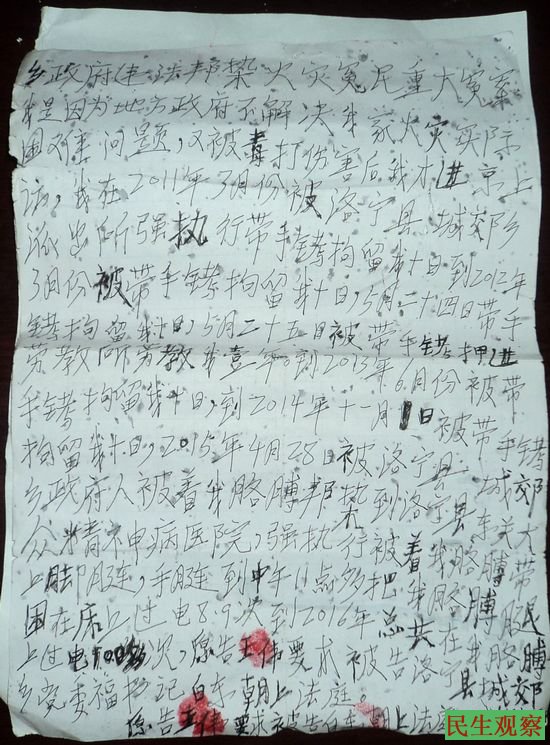 乡政府违法邦架火灾冤民重大冤案
我是因为地方政府不解决我家火灾实际
困难问题,又被毒打伤害后我才进京上
访,我在2011年3月份被洛宁县城郊乡
派出所强执行带手铐拘留我十日到2012年
3月份被带手铐拘留我十日,5月二十四日带手
铐拘留我十日,5月二十五日被带手铐押进
劳教所劳教我壹年。到2013年6月份被带
手铐拘留我十日,到2014年十一月1日被带手铐
拘留我十日,2015年4月28日被洛宁县城郊
乡政府人被着我胳膊邦架到洛宁县东关大
众精神病医院,强执行被着我胳膊带
上脚链,手链到中午11点多把我胳膊腿
困在床上过电8.9次到2016年总共在民
上过电100多次,原告 要求被告洛宁县城郊
乡党委 书记白东朝上法庭。
原告 要求被告白东朝上法
民生观察